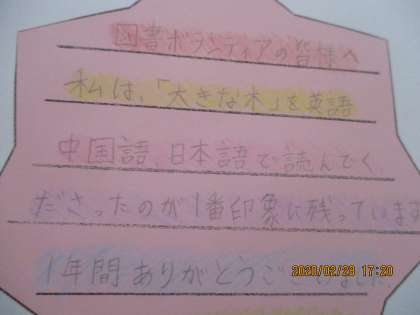 図書ボランティアの皆様へ
私は、「大きな木」を英語
中国語、日本語で読んでく
ださったのが1番印象に残っています
1年間ありがとうございました。
2020/02/28 17:20